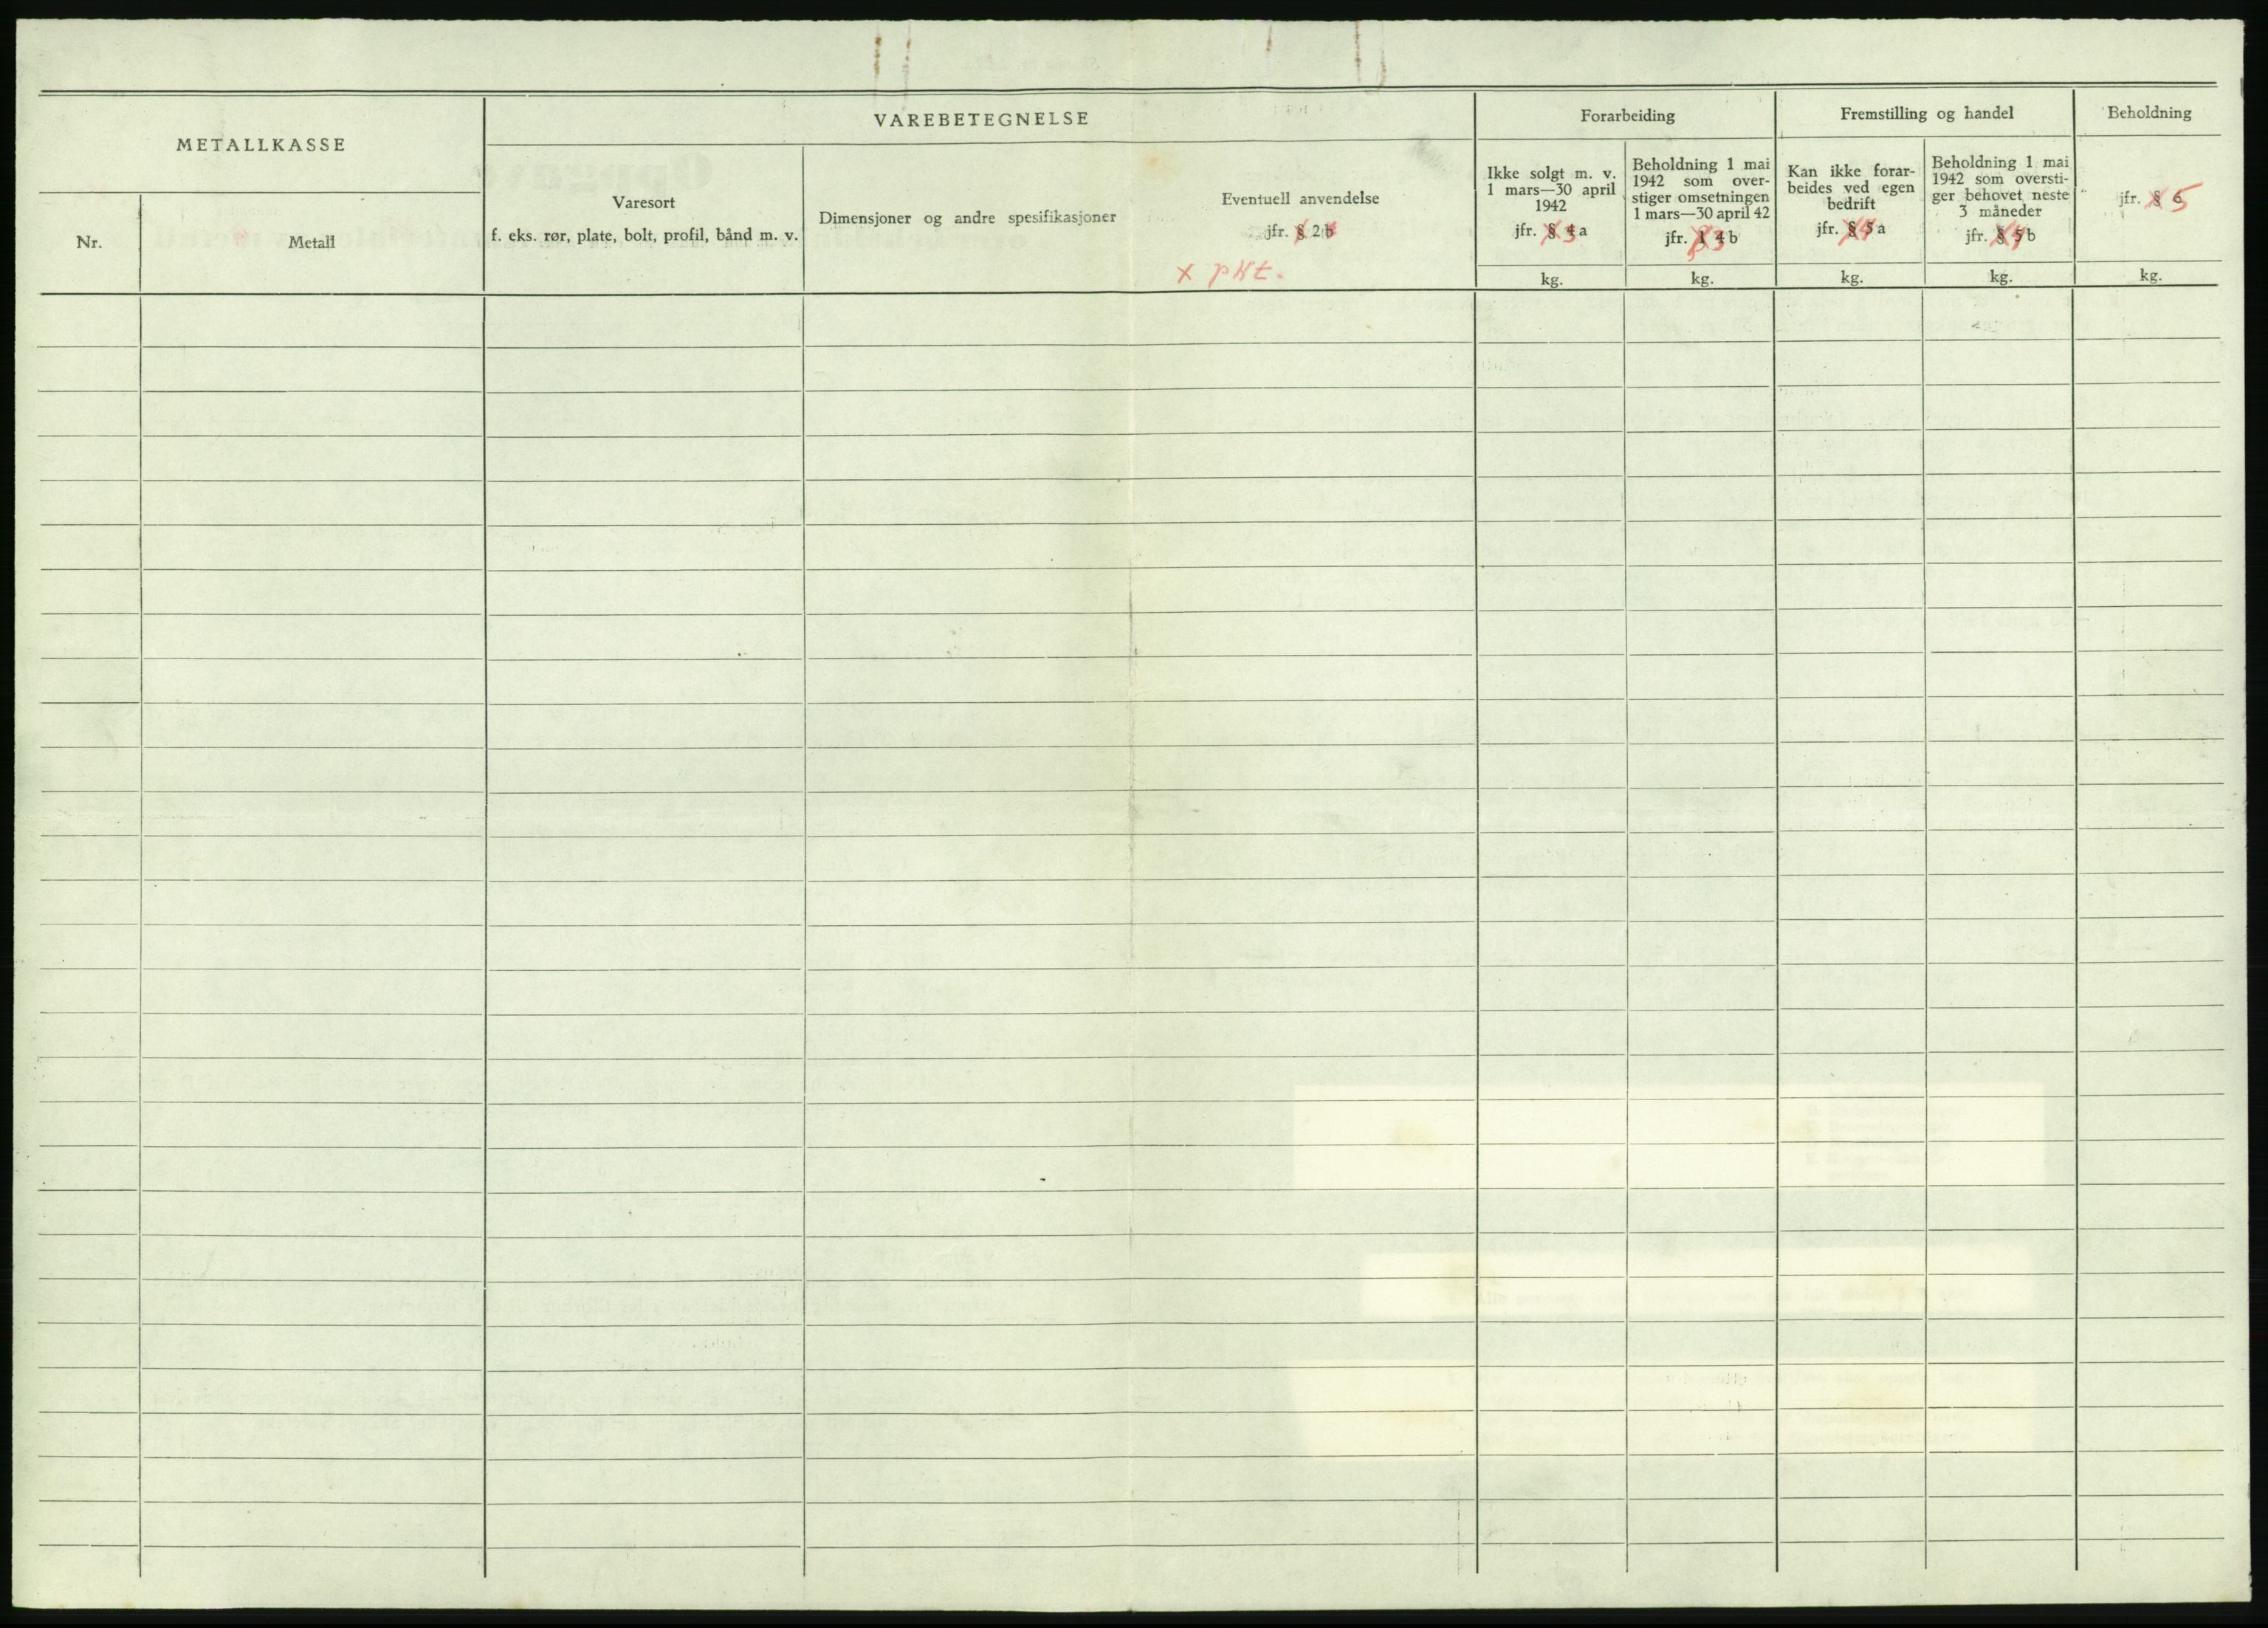 METALLKASSE
Nr.
Metall
VAREBETEGNELSE
Varesort
f. eks. rør, plate, bolt, profil, bånd m. v.
Dimensjoner og andre spesifikasjoner
Eventuell anvendelse
jfr. § 2 b
x pkt.
Forarbeiding
Ikke solgt m. v.
1 mars—30 april
1942
jfr. § 4 a
3
kg.
Beholdning 1 mai
1942 som over-
stiger omsetningen
1 mars—30 april 42
jfr. 1 4 b
3
kg.
Fremstilling og handel
Kan ikke forar-
beides ved egen
bedrift
jfr. § 5 a
4
kg.
Beholdning 1 mai
1942 som oversti-
ger behovet neste
3 måneder
jfr. § 5 b
4
kg.
Beholdning
jfr. § 6
x 5
kg.